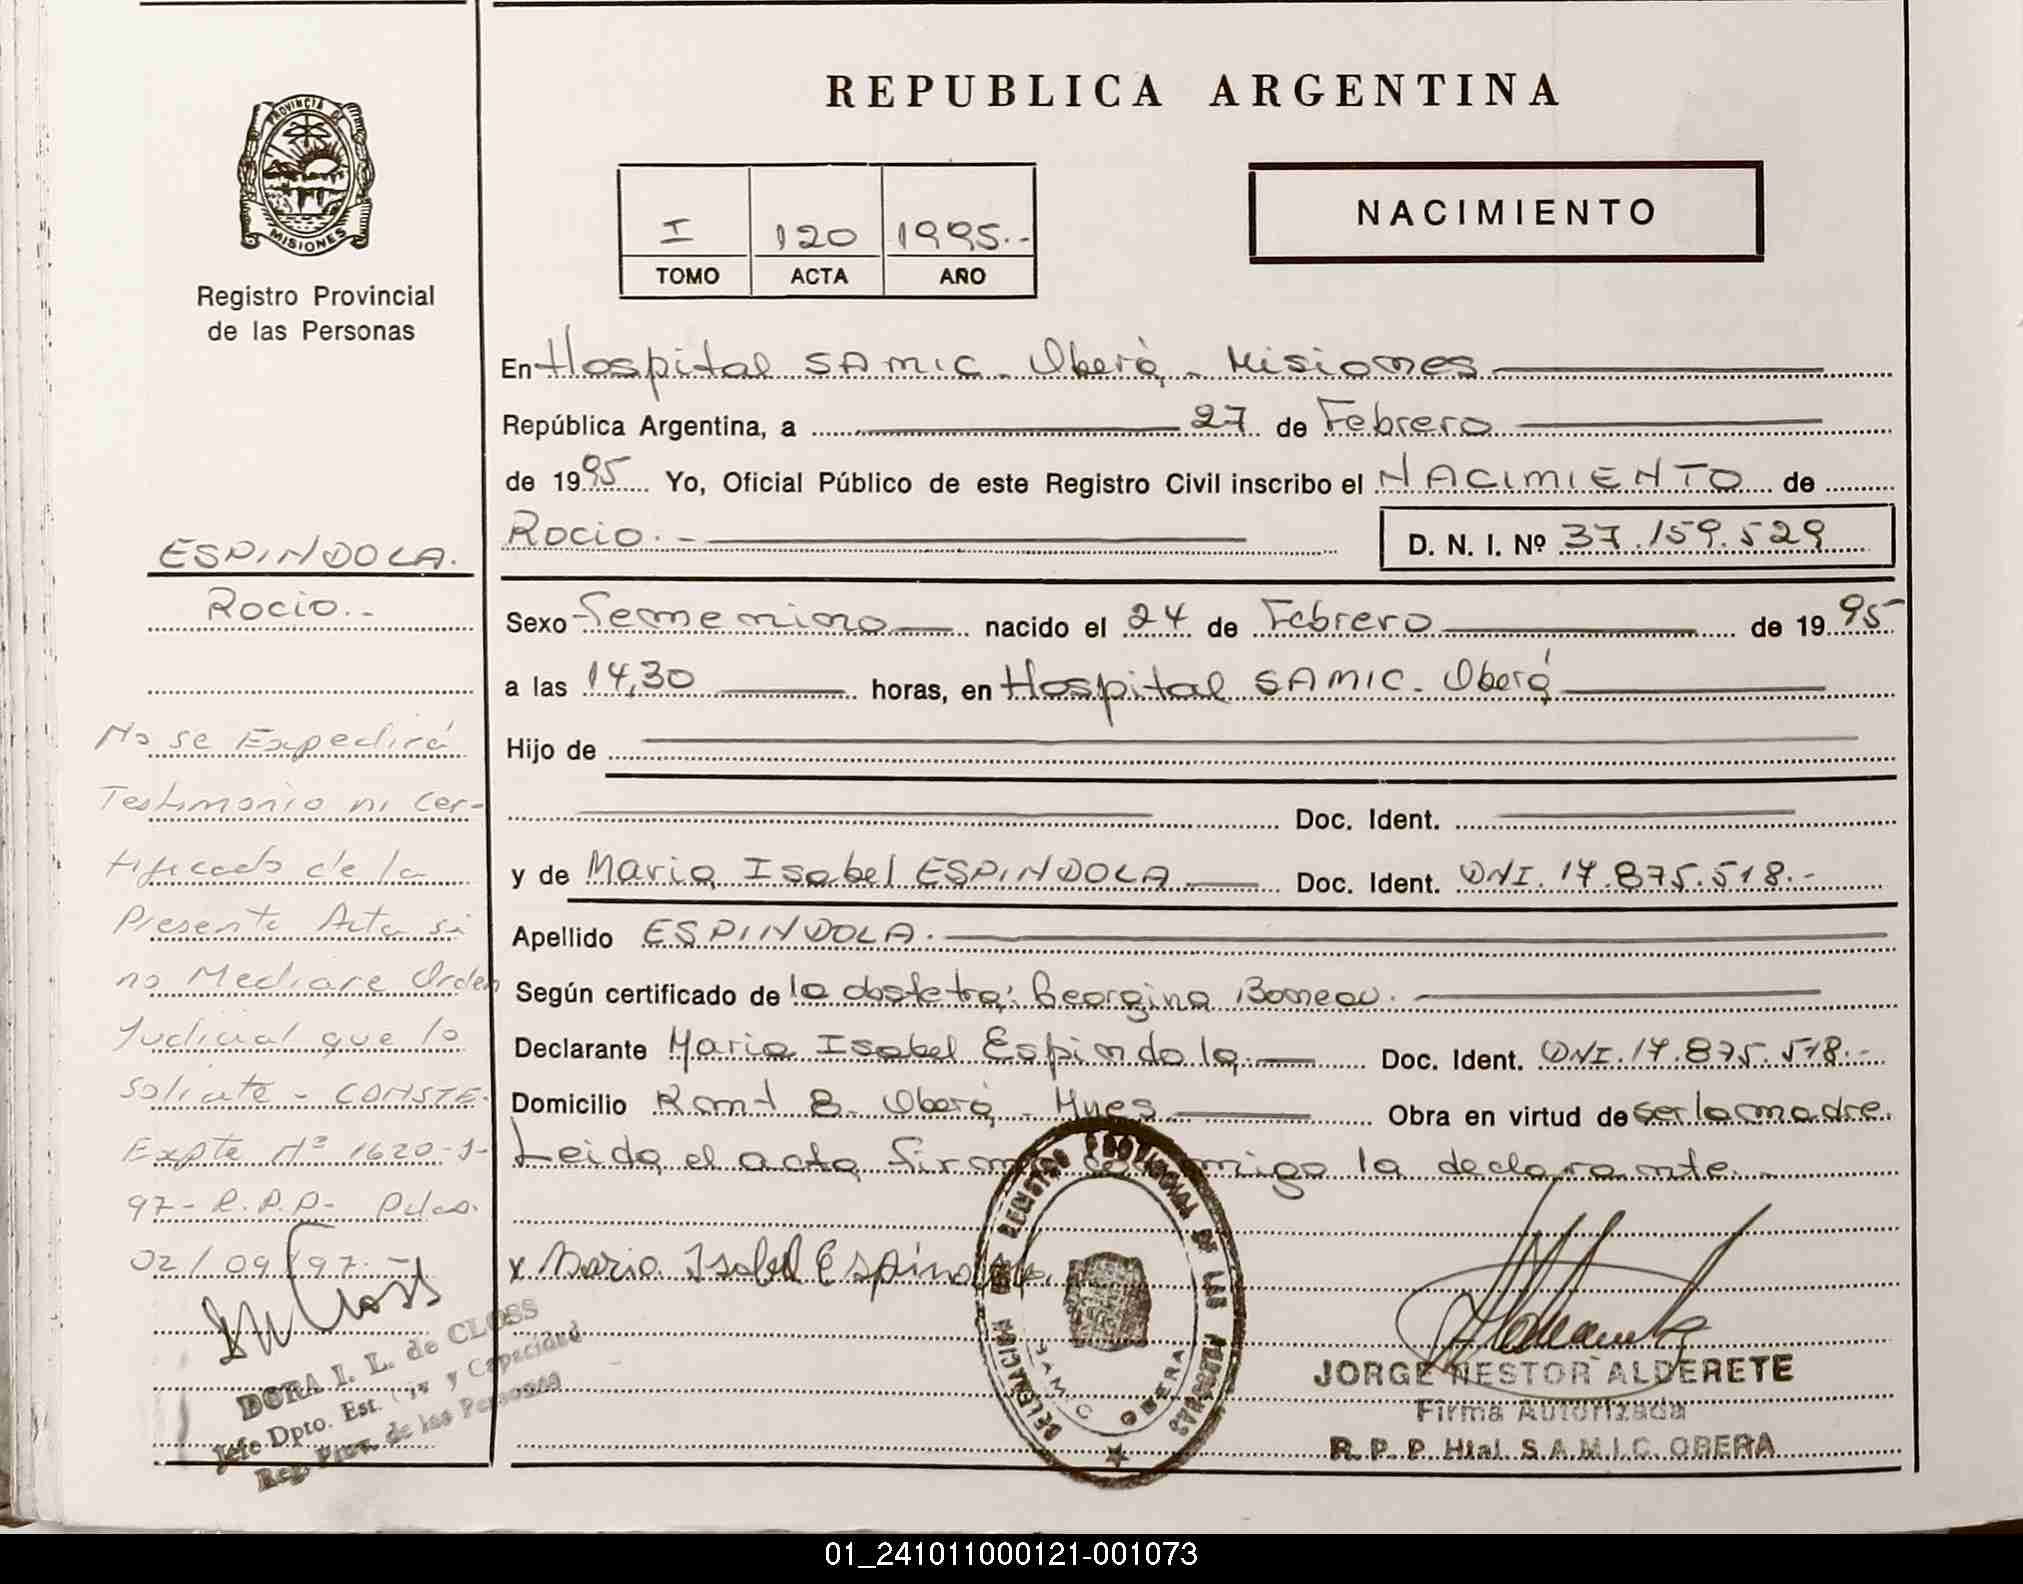 REPUBLICA ARGENTINA
PROVINCIA DE
MISIONES
Registro Provincial
de las Personas
I 120 1995.-
TOMO ACTA AÑO
NACIMIENTO
En Hospital SAMIC - Oberá - Misiones
República Argentina, a 27 de Febrero
de 1995 Yo, Oficial Público de este Registro Civil inscribo el NACIMIENTO de
Rocio.- D. N. I. Nº 37.159.529
Sexo Femenino nacido el 24 de Febrero de 1995
a las 14,30 horas, en Hospital SAMIC - Oberá
Hijo de
Doc. Ident.
y de Maria Isabel ESPINDOLA Doc. Ident. DNI. 17.875.518.-
Apellido ESPINDOLA.
Según certificado de la obstetra: Georgina Boneau.
Declarante Maria Isabel Espindola Doc. Ident. DNI. 17.875.518.-
Domicilio 8 - Oberá - Mnes Obra en virtud de ser la madre.
Leida el acta firma conmigo la declarante.-
x Maria Isabel Espindola
ESPINDOLA.
Rocio.-
No se Expedirá
Testimonio ni Cer-
tificado de la
Presente Acta si
no Mediare Orden
Judicial que lo
solicite - CONSTE.
Expte Nº 1620-J-
97- R.P.P- Pdas.
02/09/97.-
DORA I. L. de CLOSS
Jefe Dpto. Est. Civ y Capacidad
Reg. Prov. de las Personas
DELEGACION REGISTRO PROVINCIAL DE LAS PERSONAS
S.A.M.I.C OBERA
JORGE NESTOR ALDERETE
Firma Autorizada
R. P. P. Htal. S.A.M.I.C. OBERA
01_241011000121-001073